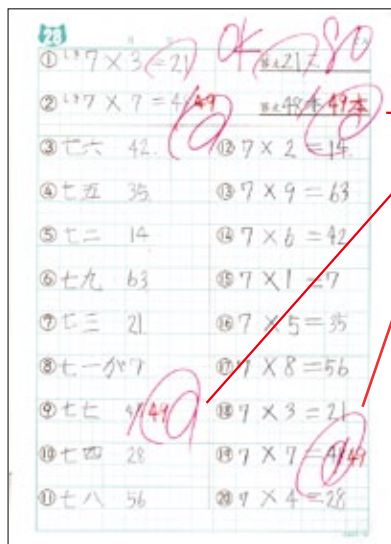 28
OK 80
① しき 7×3=21 答え21こ
② しき 7×7=4 49 答え48本 49本
③ 七六 42
④ 七五 35
⑤ 七二 14
⑥ 七九 63
⑦ 七三 21
⑧ 七一が7
⑨ 七七 49
⑩ 七四 28
⑪ 七八 56
⑫ 7×2=14
⑬ 7×9=63
⑭ 7×6=42
⑮ 7×1=7
⑯ 7×5=35
⑰ 7×8=56
⑱ 7×3=21
⑲ 7×7=4 49
⑳ 7×4=28